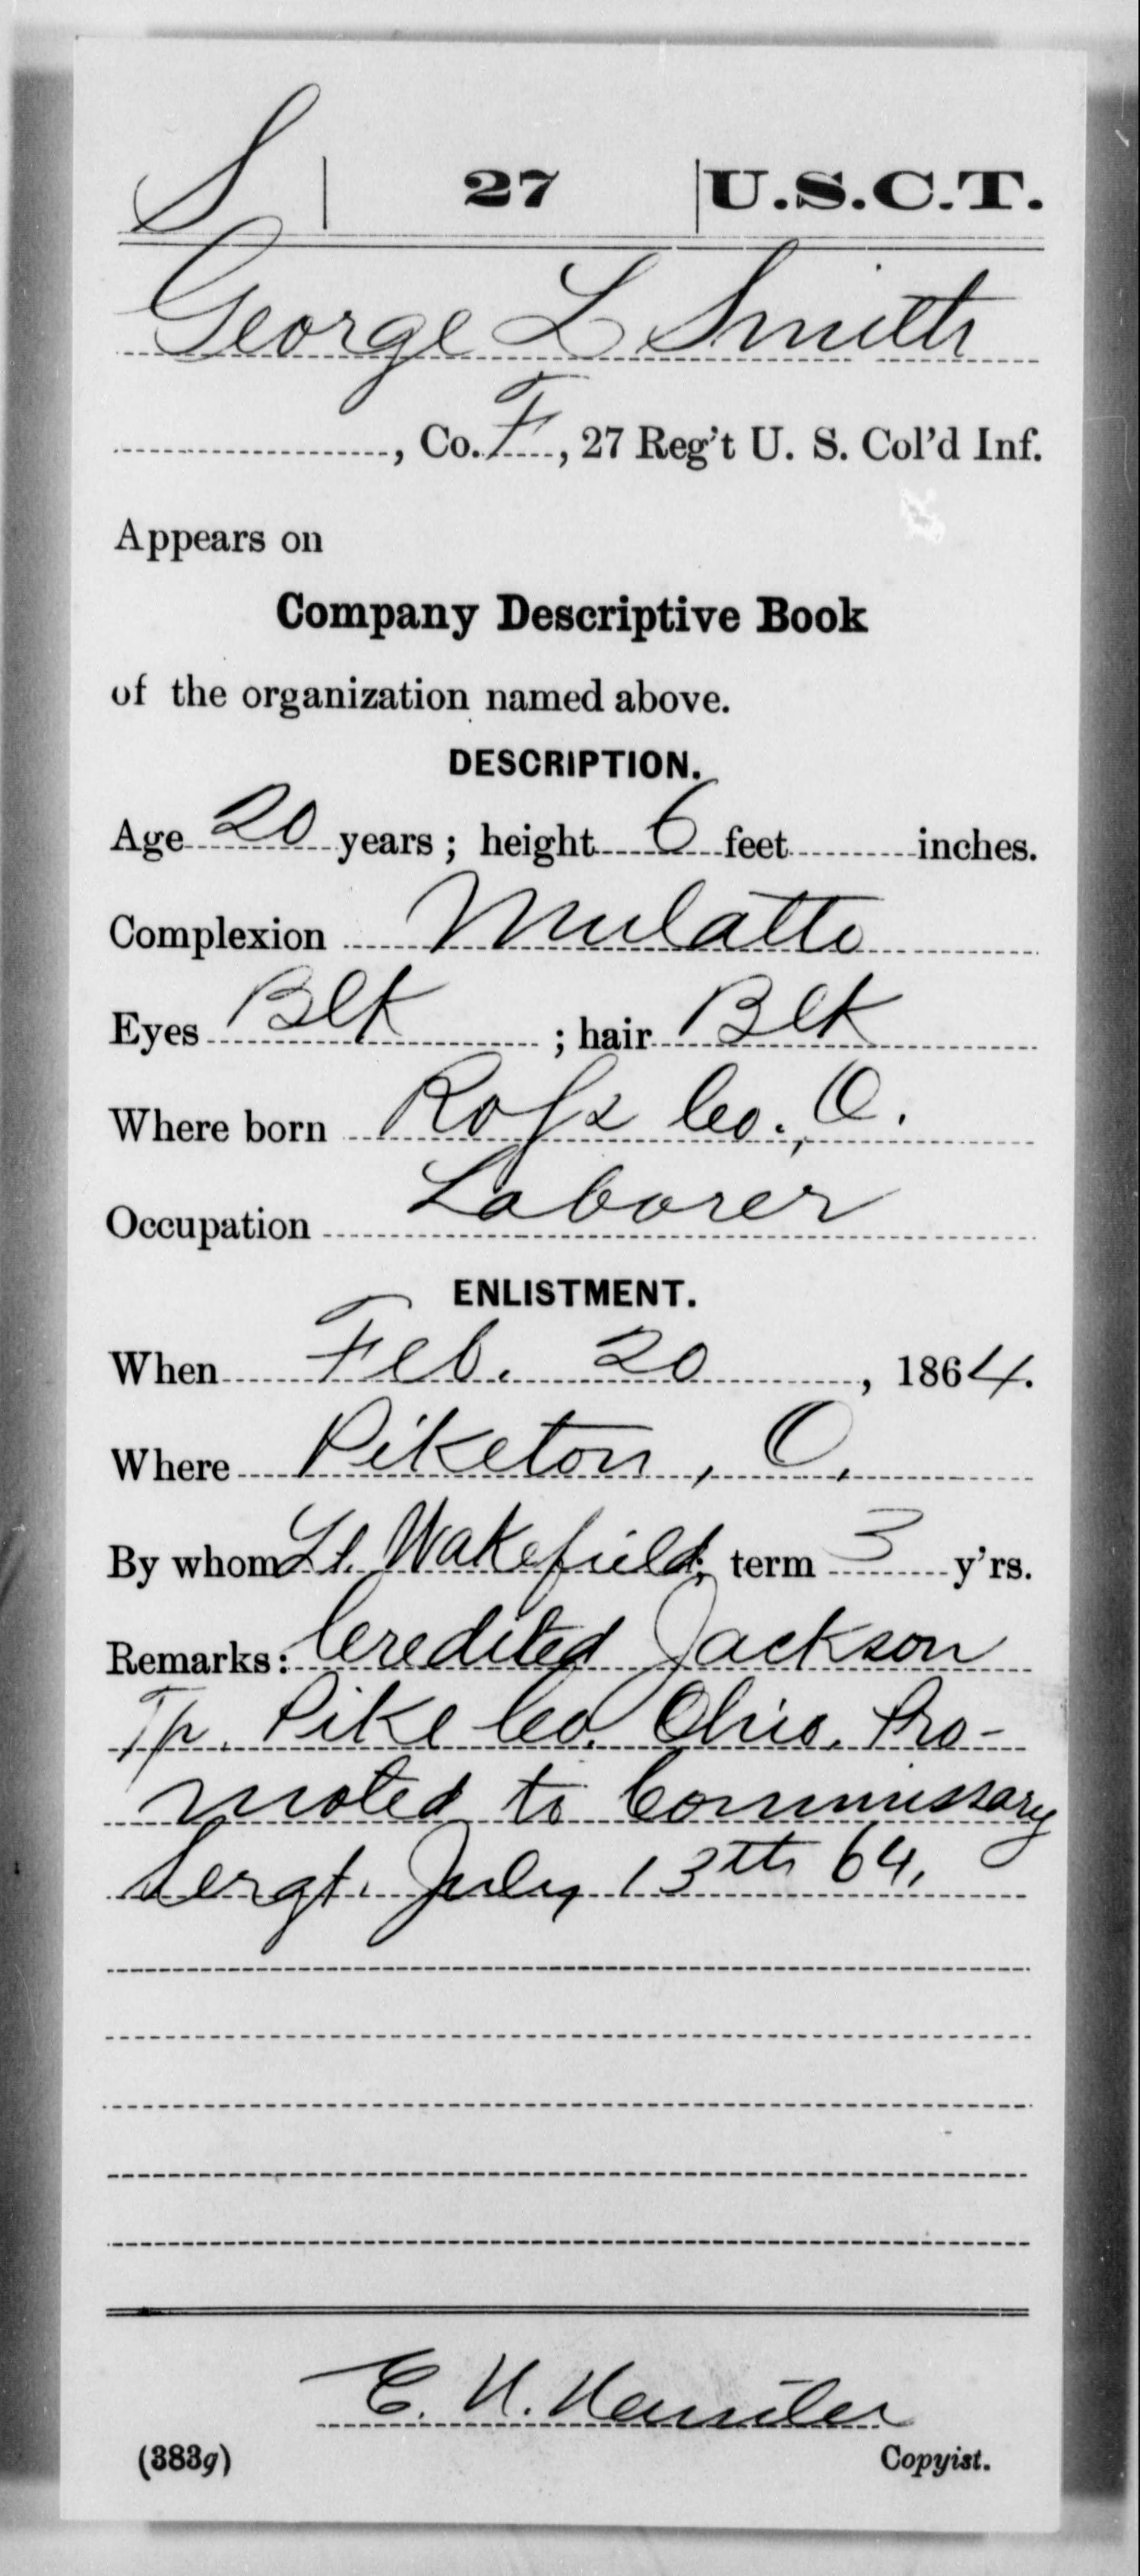 S | 27 | U.S.C.T.
George L Smith
, Co. F, 27 Reg't U. S. Col'd Inf.
Appears on
Company Descriptive Book
of the organization named above.
DESCRIPTION.
Age 20 years; height 6 feet inches.
Complexion Mulatto
Eyes Blk ; hair Blk
Where born Ross Co., O.
Occupation Laborer
ENLISTMENT.
When Feb. 20, 1864.
Where Piketon, O.
By whom Lt. Wakefield; term 3 y'rs.
Remarks: Credited Jackson
Tp. Pike Co. Ohio. Pro-
moted to Commissary
Sergt. July 13th 64.
E. H.
(383g) Copyist.